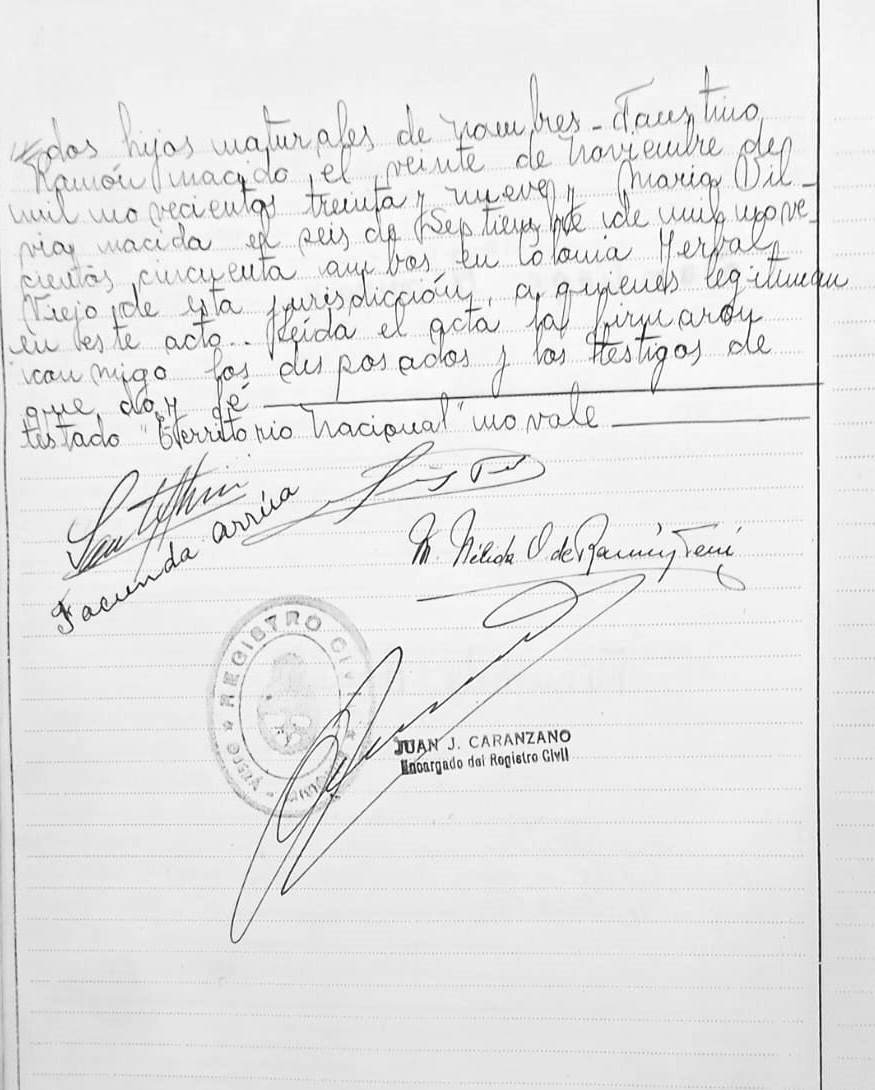 dos hijos naturales de nombres - Faustino
Ramón nacido el veinte de noviembre de
mil novecientos treinta y nueve y María Dil-
via nacida el seis de Septiembre de mil nove-
cientos cincuenta ambos en Colonia Yerbal
Viejo de esta jurisdicción, a quienes legitiman
en este acto.. Leída el acta la firmaron
conmigo los desposados y los testigos de
que doy fé
testado "Territorio Nacional" no vale
Facunda arrúa
M. Nélida O de Ramírez
REGISTRO CIVIL
JUAN J. CARANZANO
Encargado del Registro Civil